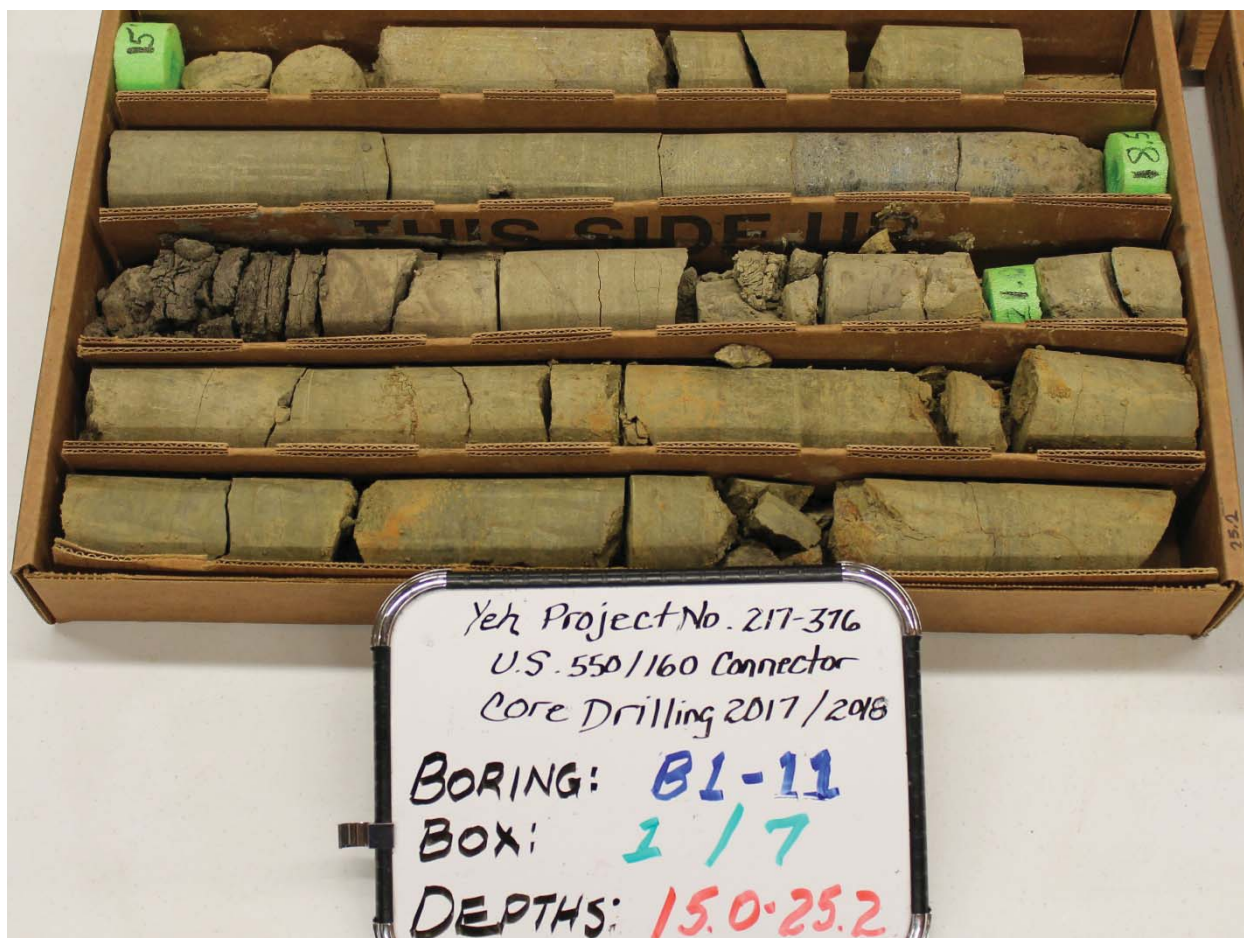 15
18.5
THIS SIDE UP
25.2
Yeh Project No. 217-376
U.S. 550/160 Connector
Core Drilling 2017/2018
BORING: B1-11
BOX: 1/7
DEPTHS: 15.0-25.2